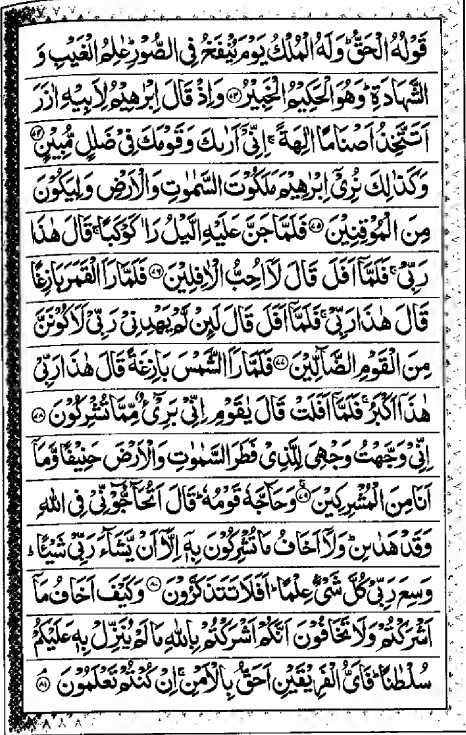 قَوْلُهُ الْحَقُّ ؕ وَلَهُ الْمُلْكُ يَوْمَ يُنْفَخُ فِى الصُّوْرِ ؕ عٰلِمُ الْغَيْبِ وَ
الشَّهَادَةِ ؕ وَهُوَ الْحَكِيْمُ الْخَبِيْرُ ۝۷۳ وَاِذْ قَالَ اِبْرٰهِيْمُ لِاَبِيْهِ اٰزَرَ
اَتَتَّخِذُ اَصْنَامًا اٰلِهَةً ۚ اِنِّىْۤ اَرٰىكَ وَقَوْمَكَ فِىْ ضَلٰلٍ مُّبِيْنٍ ۝۷۴
وَكَذٰلِكَ نُرِىْۤ اِبْرٰهِيْمَ مَلَكُوْتَ السَّمٰوٰتِ وَالْاَرْضِ وَلِيَكُوْنَ
مِنَ الْمُوْقِنِيْنَ ۝۷۵ فَلَمَّا جَنَّ عَلَيْهِ الَّيْلُ رَاٰ كَوْكَبًا ۚ قَالَ هٰذَا
رَبِّىْ ۚ فَلَمَّاۤ اَفَلَ قَالَ لَاۤ اُحِبُّ الْاٰفِلِيْنَ ۝۷۶ فَلَمَّا رَاَ الْقَمَرَ بَازِغًا
قَالَ هٰذَا رَبِّىْ ۚ فَلَمَّاۤ اَفَلَ قَالَ لَئِنْ لَّمْ يَهْدِنِىْ رَبِّىْ لَاَكُوْنَنَّ
مِنَ الْقَوْمِ الضَّآلِّيْنَ ۝۷۷ فَلَمَّا رَاَ الشَّمْسَ بَازِغَةً قَالَ هٰذَا رَبِّىْ
هٰذَاۤ اَكْبَرُ ۚ فَلَمَّاۤ اَفَلَتْ قَالَ يٰقَوْمِ اِنِّىْ بَرِىْٓءٌ مِّمَّا تُشْرِكُوْنَ ۝۷۸
اِنِّىْ وَجَّهْتُ وَجْهِىَ لِلَّذِىْ فَطَرَ السَّمٰوٰتِ وَالْاَرْضَ حَنِيْفًا وَّمَاۤ
اَنَا مِنَ الْمُشْرِكِيْنَ ۝۷۹ وَحَآجَّهٗ قَوْمُهٗ ؕ قَالَ اَتُحَآجُّوْٓنِّىْ فِى اللّٰهِ
وَقَدْ هَدٰىنِ ؕ وَلَاۤ اَخَافُ مَا تُشْرِكُوْنَ بِهٖۤ اِلَّاۤ اَنْ يَّشَآءَ رَبِّىْ شَيْـًٔا ؕ
وَسِعَ رَبِّىْ كُلَّ شَىْءٍ عِلْمًا ؕ اَفَلَا تَتَذَكَّرُوْنَ ۝۸۰ وَكَيْفَ اَخَافُ مَاۤ
اَشْرَكْتُمْ وَلَا تَخَافُوْنَ اَنَّكُمْ اَشْرَكْتُمْ بِاللّٰهِ مَا لَمْ يُنَزِّلْ بِهٖ عَلَيْكُمْ
سُلْطٰنًا ؕ فَاَىُّ الْفَرِيْقَيْنِ اَحَقُّ بِالْاَمْنِ ۚ اِنْ كُنْتُمْ تَعْلَمُوْنَ ۘ ۝۸۱